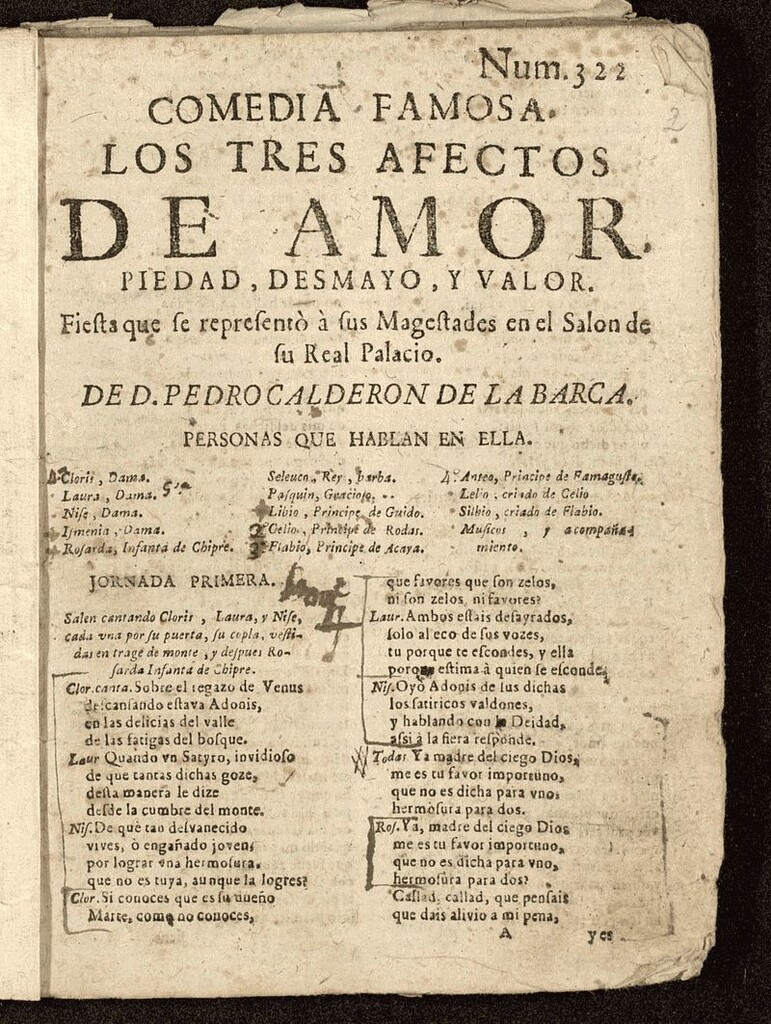 Num. 322
2
COMEDIA FAMOSA.
LOS TRES AFECTOS
DE AMOR.
PIEDAD, DESMAYO, Y VALOR.
Fiesta que se representò à sus Magestades en el Salon de
su Real Palacio.
DE D. PEDRO CALDERON DE LA BARCA.
PERSONAS QUE HABLAN EN ELLA.
Cloris, Dama.
Laura, Dama. 5ª
Nise, Dama.
Ismenia, Dama.
Rosarda, Infanta de Chipre.
Seleuco, Rey, barba.
Pasquin, Gracioso.
Libio, Principe de Guido.
2 Celio, Principe de Rodas.
3 Flabio, Principe de Acaya.
4º Anteo, Principe de Famagusta.
Lelio, criado de Celio
Silbio, criado de Flabio.
Musicos, y acompaña-
miento.
JORNADA PRIMERA.
Salen cantando Cloris, Laura, y Nise,
cada vna por su puerta, su copla, vesti-
das en trage de monte, y despues Ro-
sarda Infanta de Chipre.
Clor. canta. Sobre el regazo de Venus
descansando estava Adonis,
en las delicias del valle
de las fatigas del bosque.
Laur Quando vn Satyro, invidioso
de que tantas dichas goze,
desta manera le dize
desde la cumbre del monte.
Nis. De què tan desvanecido
vives, ò engañado joven,
por lograr vna hermosura.
que no es tuya, aunque la logres?
Clor. Si conoces que es su dueño
Marte, como no conoces,
que favores que son zelos,
ni son zelos, ni favores?
Laur. Ambos estais desayrados,
solo al eco de sus vozes,
tu porque te escondes, y ella
porque estima à quien se esconde.
Nis. Oyò Adonis de sus dichas
los satiricos valdones,
y hablando con la Deidad,
assi à la fiera responde.
Todas Ya madre del ciego Dios,
me es tu favor importuno,
que no es dicha para vno,
hermosura para dos.
Ros. Ya, madre del ciego Dios
me es tu favor importuno,
que no es dicha para vno,
hermosura para dos?
Callad, callad, que pensais
que dais alivio a mi pena,
A yes